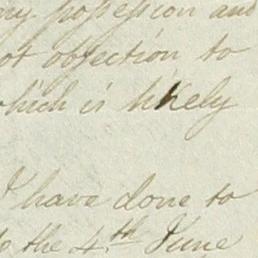 my possession and
not objection to
which is likely
I have done to
to the 4th June